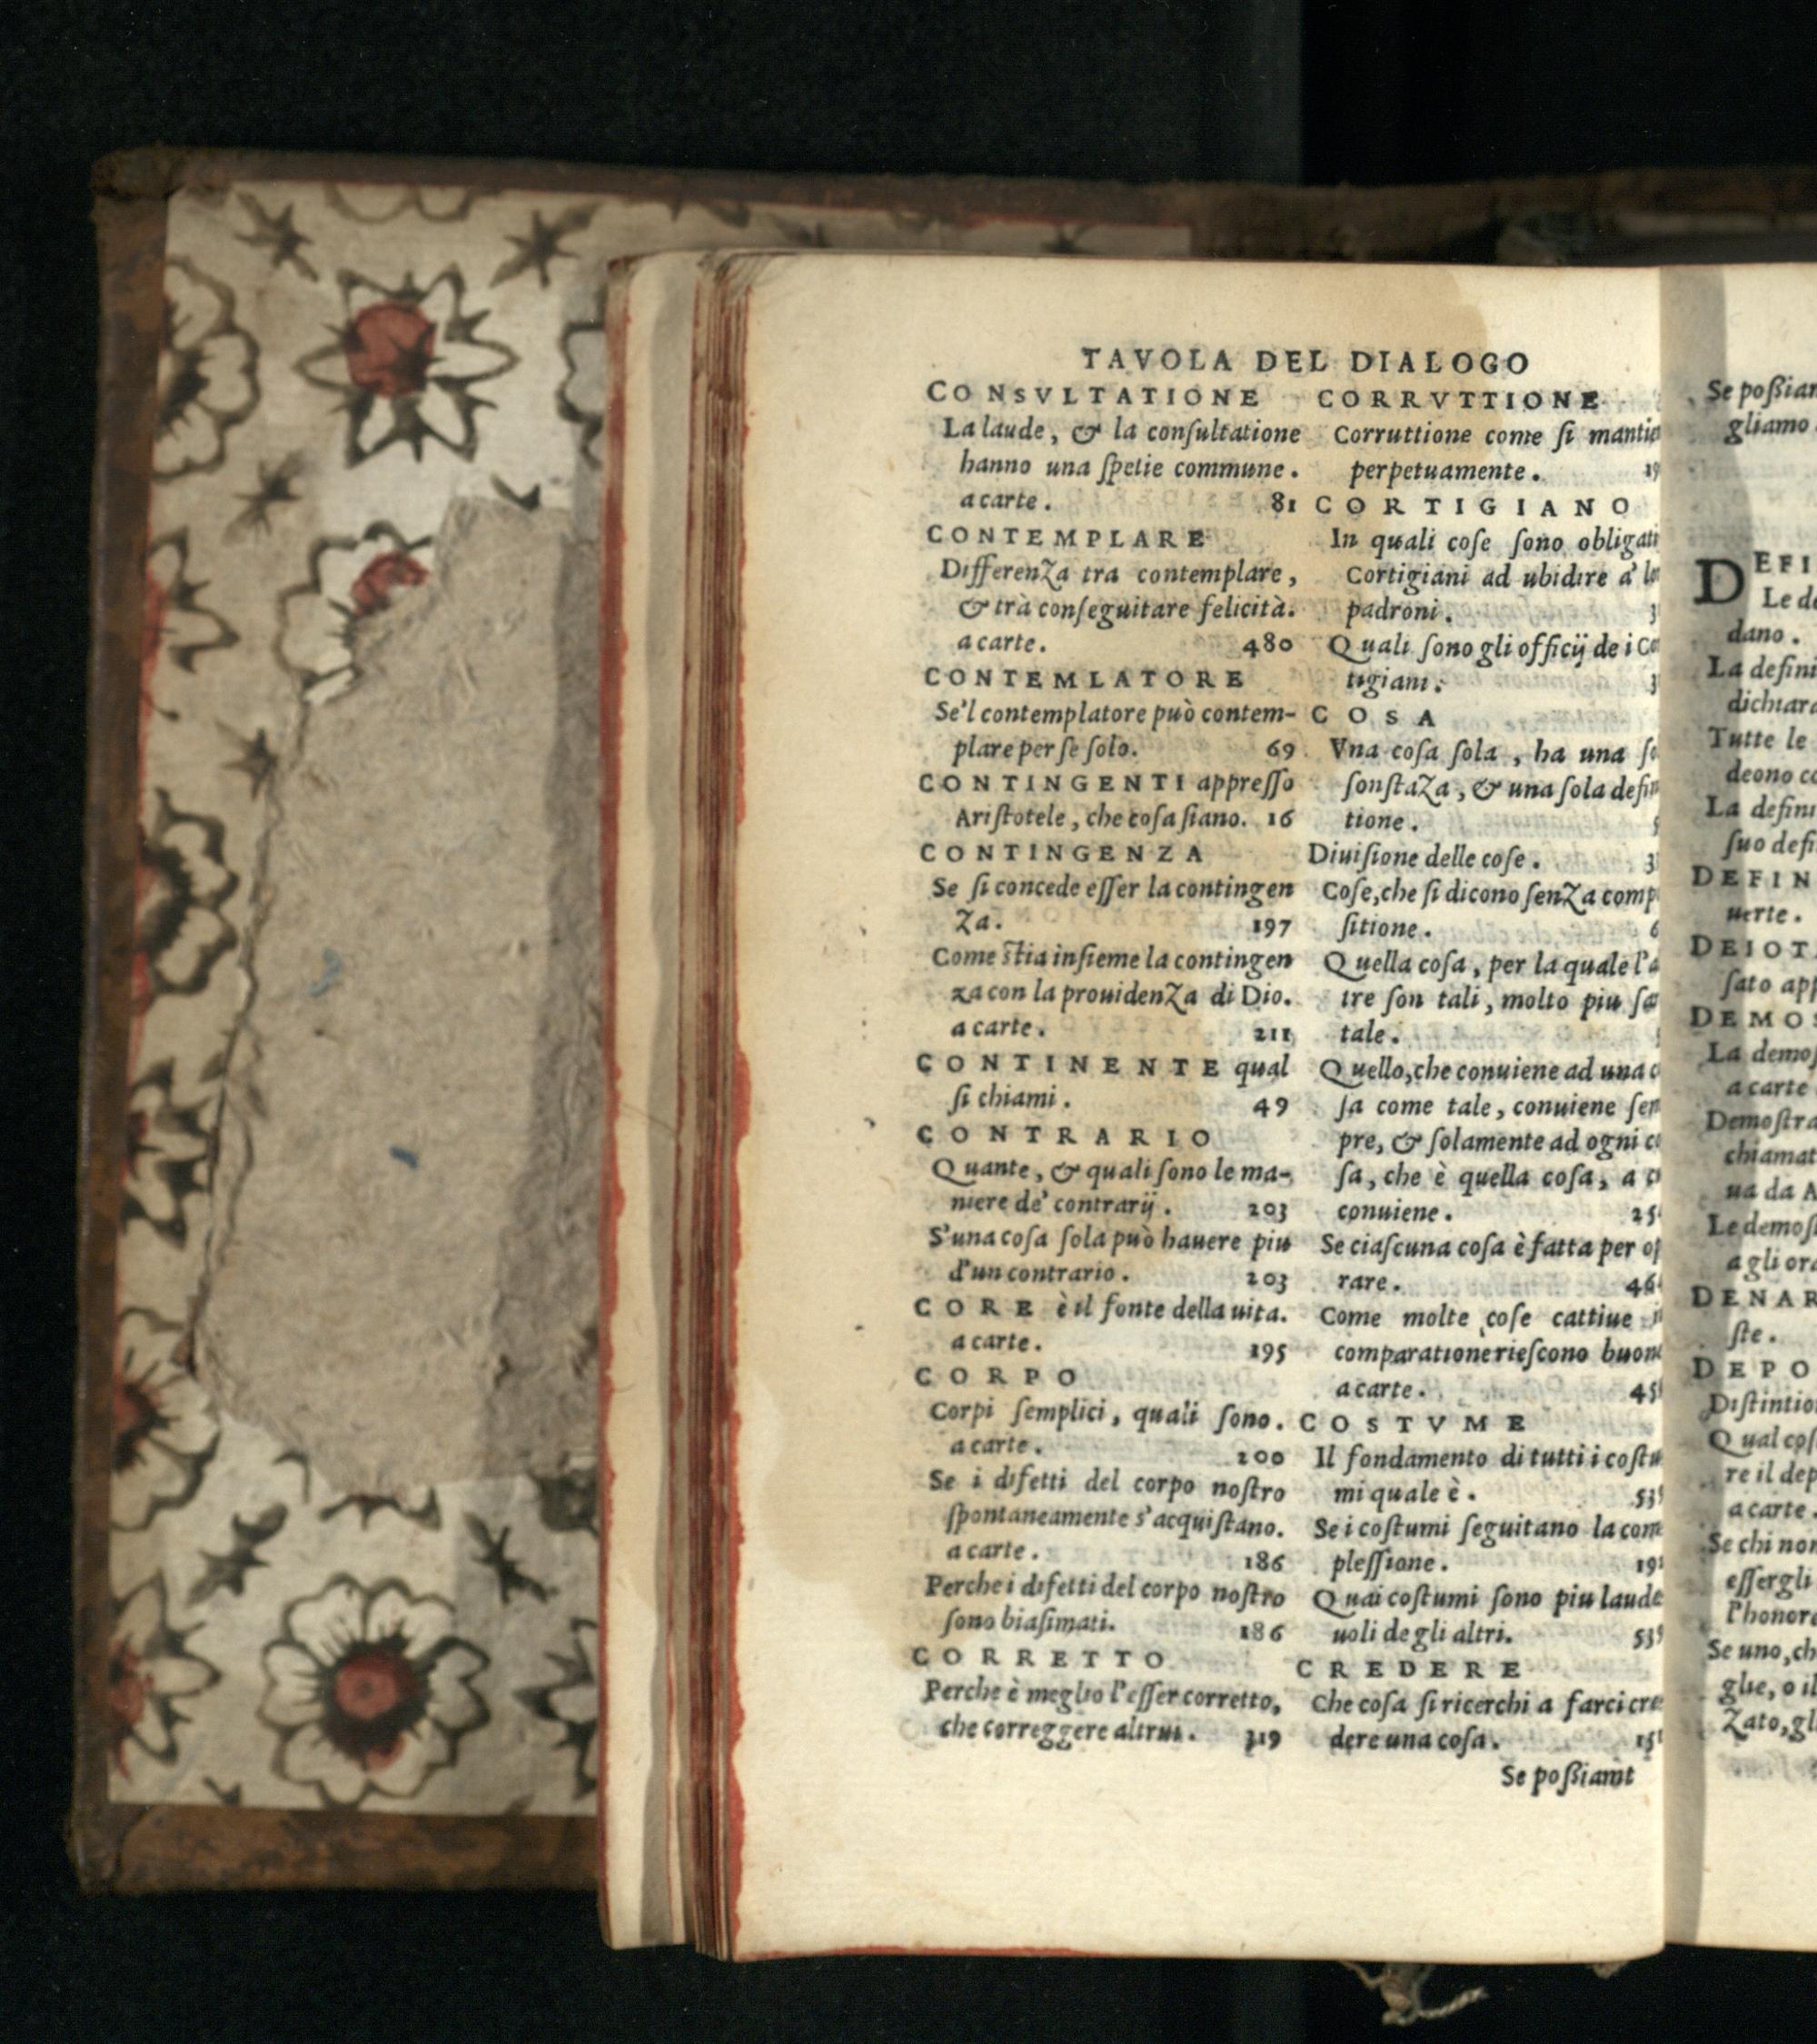 TAVOLA DEL DIALOGO
CONSVLTATIONE
La laude, & la conſultatione
hanno una ſpetie commune.
a carte. 81
CONTEMPLARE
Differenza tra contemplare,
& trà conſeguitare felicità.
a carte. 480
CONTEMLATORE
Se'l contemplatore può contem-
plare per ſe ſolo. 69
CONTINGENTI appreſſo
Ariſtotele, che coſa ſiano. 16
CONTINGENZA
Se ſi concede eſſer la contingen
za. 197
Come ſtia inſieme la contingen
za con la prouidenza di Dio.
a carte. 211
CONTINENTE qual
ſi chiami. 49
CONTRARIO
Quante, & quali ſono le ma-
niere de' contrarij. 203
S'una coſa ſola può hauere piu
d'un contrario. 203
CORE è il fonte della uita.
a carte. 195
CORPO
Corpi ſemplici, quali ſono.
a carte. 200
Se i difetti del corpo noſtro
ſpontaneamente s'acquiſtano.
a carte. 186
Perche i difetti del corpo noſtro
ſono biaſimati. 186
CORRETTO
Perche è meglio l'eſſer corretto,
che correggere altrui. 319
CORRVTTIONE
Corruttione come ſi mantie
perpetuamente. 19
CORTIGIANO
In quali coſe ſono obligati
Cortigiani ad ubidire a' lo
padroni. 3
Quali ſono gli officij de i Co
tigiani. 3
COSA
Vna coſa ſola, ha una ſo
ſonſtaza, & una ſola defin
tione.
Diuiſione delle coſe. 3
Coſe, che ſi dicono ſenza comp
ſitione. 6
Quella coſa, per la quale l'a
tre ſon tali, molto piu ſa
tale.
Quello, che conuiene ad una c
ſa come tale, conuiene ſem
pre, & ſolamente ad ogni c
ſa, che è quella coſa, a c
conuiene. 25
Se ciaſcuna coſa è fatta per op
rare. 46
Come molte coſe cattiue
comparatione rieſcono buon
a carte. 45
COSTVME
Il fondamento di tutti i coſtu
mi quale è. 53
Se i coſtumi ſeguitano la com
pleſſione. 19
Quai coſtumi ſono piu laude
uoli de gli altri. 53
CREDERE
Che coſa ſi ricerchi a farci cre
dere una coſa. 15
Se poßiamt
Se poßiam
gliamo
DEFI
Le de
dano.
La defini
dichiara
Tutte le
deono co
La defini
ſuo defi
DEFIN
uerte.
DEIOT
ſato app
DEMOS
La demoſ
a carte
Demoſtra
chiamat
ua da A
Le demoſ
a gli ora
DENAR
ſte.
DEPO
Diſtintio
Qual coſ
re il dep
a carte.
Se chi non
eſſergli
l'honor
Se uno, ch
glie, o il
Zato, gl